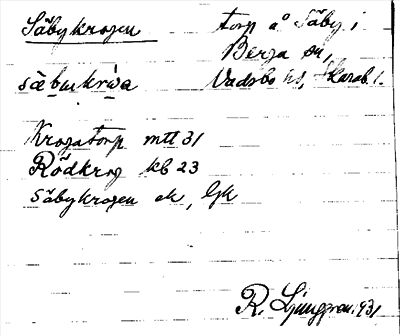 Säbykrogen
torp å Säby i
Berga sn,
Vadsbo hd, Skarab. l.
Krogatorp mtl 31
Rödkrog kb 23
Säbykrogen ek, Gk
R. Ljunggren. 931